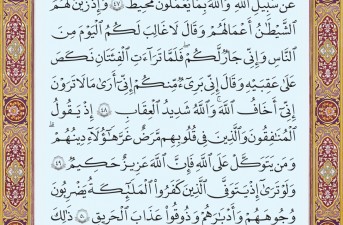 عَن سَبِيلِ ٱللَّهِ وَٱللَّهُ بِمَا يَعْمَلُونَ مُحِيطٌ ٤٧ وَإِذْ زَيَّنَ لَهُمُ
ٱلشَّيْطَٰنُ أَعْمَٰلَهُمْ وَقَالَ لَا غَالِبَ لَكُمُ ٱلْيَوْمَ مِنَ
ٱلنَّاسِ وَإِنِّى جَارٌ لَّكُمْ فَلَمَّا تَرَآءَتِ ٱلْفِئَتَانِ نَكَصَ
عَلَىٰ عَقِبَيْهِ وَقَالَ إِنِّى بَرِىٓءٌ مِّنكُمْ إِنِّىٓ أَرَىٰ مَا لَا تَرَوْنَ
إِنِّىٓ أَخَافُ ٱللَّهَ وَٱللَّهُ شَدِيدُ ٱلْعِقَابِ ٤٨ إِذْ يَقُولُ
ٱلْمُنَٰفِقُونَ وَٱلَّذِينَ فِى قُلُوبِهِم مَّرَضٌ غَرَّ هَٰٓؤُلَآءِ دِينُهُمْ
وَمَن يَتَوَكَّلْ عَلَى ٱللَّهِ فَإِنَّ ٱللَّهَ عَزِيزٌ حَكِيمٌ ٤٩
وَلَوْ تَرَىٰٓ إِذْ يَتَوَفَّى ٱلَّذِينَ كَفَرُوا۟ ٱلْمَلَٰٓئِكَةُ يَضْرِبُونَ
وُجُوهَهُمْ وَأَدْبَٰرَهُمْ وَذُوقُوا۟ عَذَابَ ٱلْحَرِيقِ ٥٠ ذَٰلِكَ